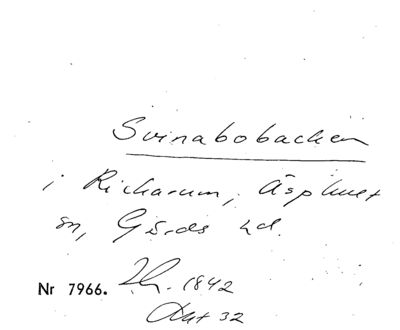 Svinabobacken
i Rickarum, Äsphult
sn, Gärds hd.
Nr 7966. 1842
32